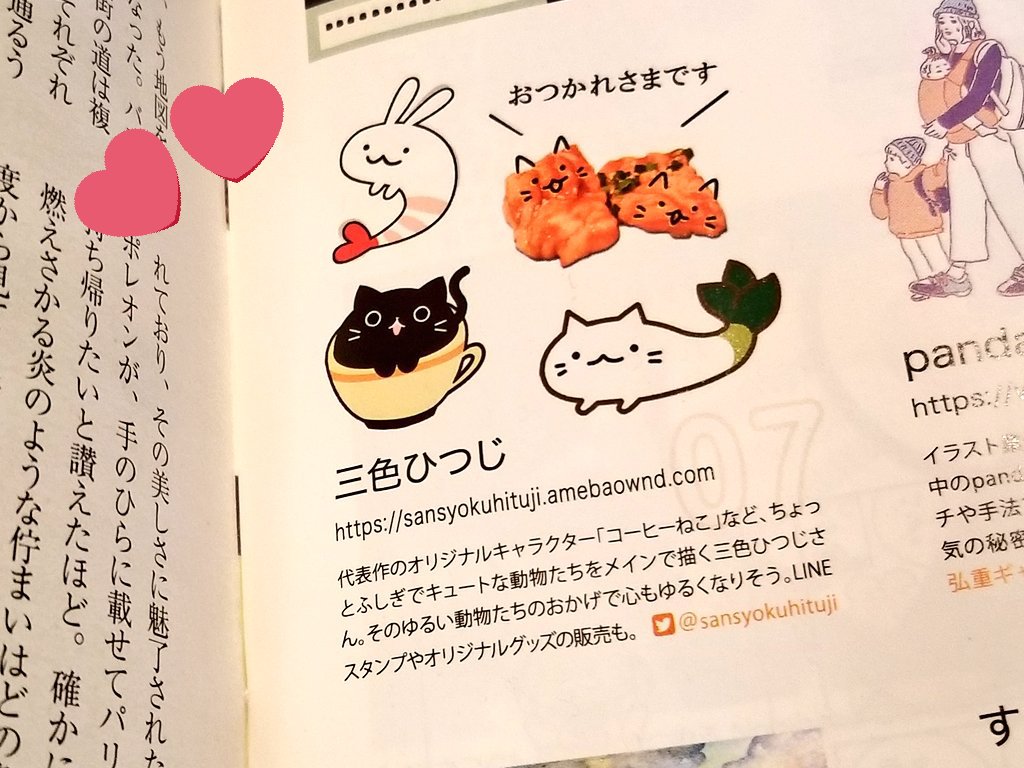 おつかれさまです
三色ひつじ
https://sansyokuhituji.amebaownd.com
代表作のオリジナルキャラクター「コーヒーねこ」など、ちょっ
とふしぎでキュートな動物たちをメインで描く三色ひつじさ
ん。そのゆるい動物たちのおかげで心もゆるくなりそう。LINE
スタンプやオリジナルグッズの販売も。
@sansyokuhituji
07
panda
https://
イラスト
中のpand
チや手法
気の秘密
弘重ギャ
す
、もう地図を
れており、その美しさに魅了された
ポレオンが、手のひらに載せてパリ
持ち帰りたいと讃えたほど。確かに
燃えさかる炎のような佇まいはどの
度から見
なった。パ
街の道は複、
それぞれ
通るう